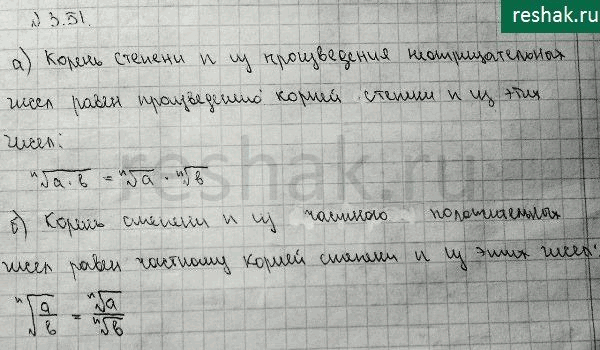 reshak.ru
N 3.51.
а) Корень степени n из произведения неотрицательных
чисел равен произведению корней степени n из этих
чисел:
ⁿ√(a·b) = ⁿ√a · ⁿ√b
reshak.ru
б) Корень степени n из частного положительных
чисел равен частному корней степени n из этих чисел:
ⁿ√(a/b) = ⁿ√a / ⁿ√b